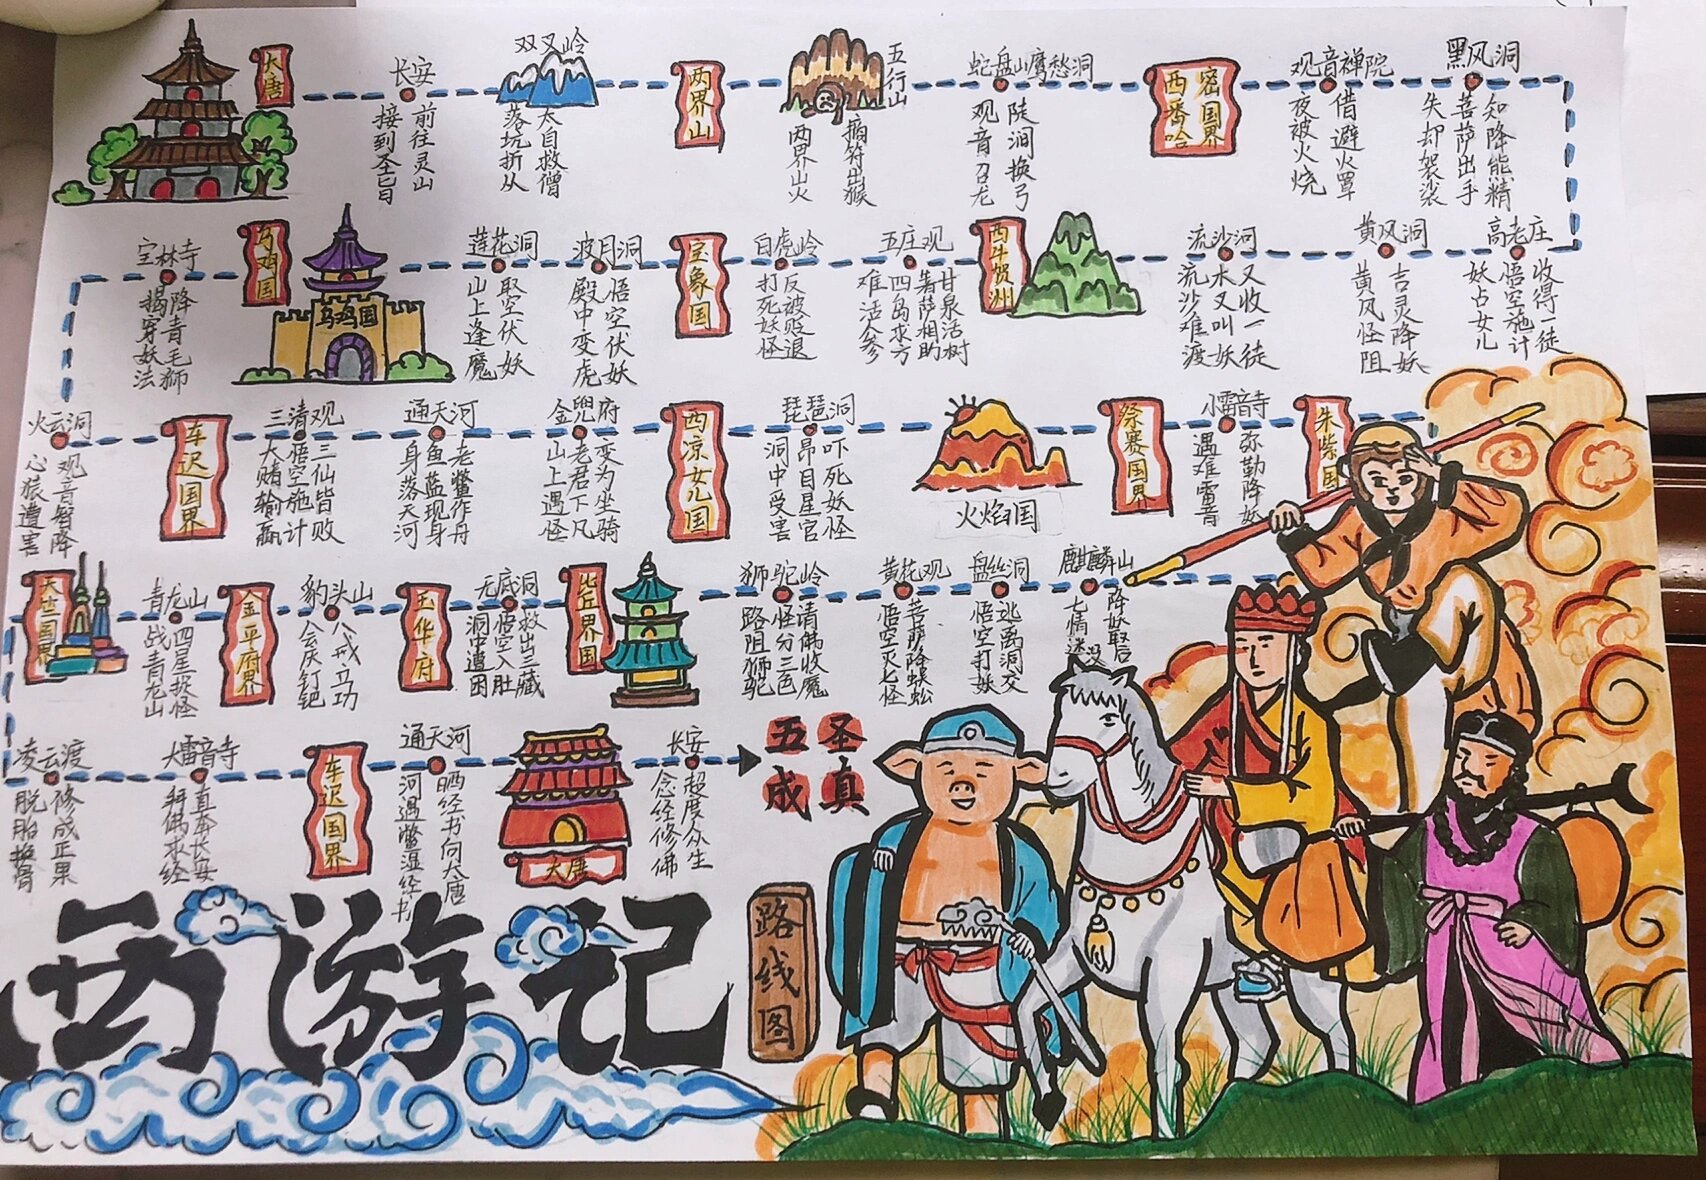 大唐
长安
接到圣旨
前往灵山
双叉岭
落坑折从
太白救僧
两界山
五行山
两界山火
揭符出猴
蛇盘山鹰愁涧
观音召龙
陡涧换弓
西番哈
密国界
观音禅院
夜被火烧
借避火罩
黑风洞
失却袈裟
菩萨出手
知降熊精
高老庄
妖占女儿
悟空施计
收得一徒
黄风洞
黄风怪阻
吉灵降妖
流沙河
流沙难渡
木叉叫妖
又收一徒
西牛贺洲
五庄观
难活参
四岛求方
菩萨相助
甘泉活树
白虎岭
打死妖怪
反被贬退
宝象国
波月洞
殿中变虎
悟空伏妖
莲花洞
山上逢魔
取空伏妖
乌鸡国
乌鸡国
宝林寺
揭穿妖法
降青毛狮
火云洞
心猿遭害
观音智降
车迟国界
三清观
大赌输赢
悟空施计
三仙皆败
通天河
身落天河
鱼蓝现身
老鳖作舟
金兜府
山上遇怪
老君下凡
变为坐骑
西凉女儿国
琵琶洞
洞中受害
昴日星官
吓死妖怪
火焰国
祭赛国界
小雷音寺
遇难雷音
弥勒降妖
朱紫国
麒麟山
七情迷没
降妖取后
盘丝洞
悟空打妖
逃离洞交
黄花观
悟空灭七怪
菩萨降蜈蚣
狮驼岭
路阻狮驼
怪分三色
请佛收魔
比丘界国
无底洞
洞中遭困
悟空入肚
救出三藏
玉华府
豹头山
会庆钉钯
八戒立功
金平府界
青龙山
战青龙山
四星捉怪
天竺国界
凌云渡
脱胎换骨
修成正果
大雷音寺
拜佛求经
直奔长安
车迟国界
通天河
河遇鳖湿经书
晒经书向大唐
大唐
长安
念经修佛
超度众生
五圣
成真
西游记
路线图